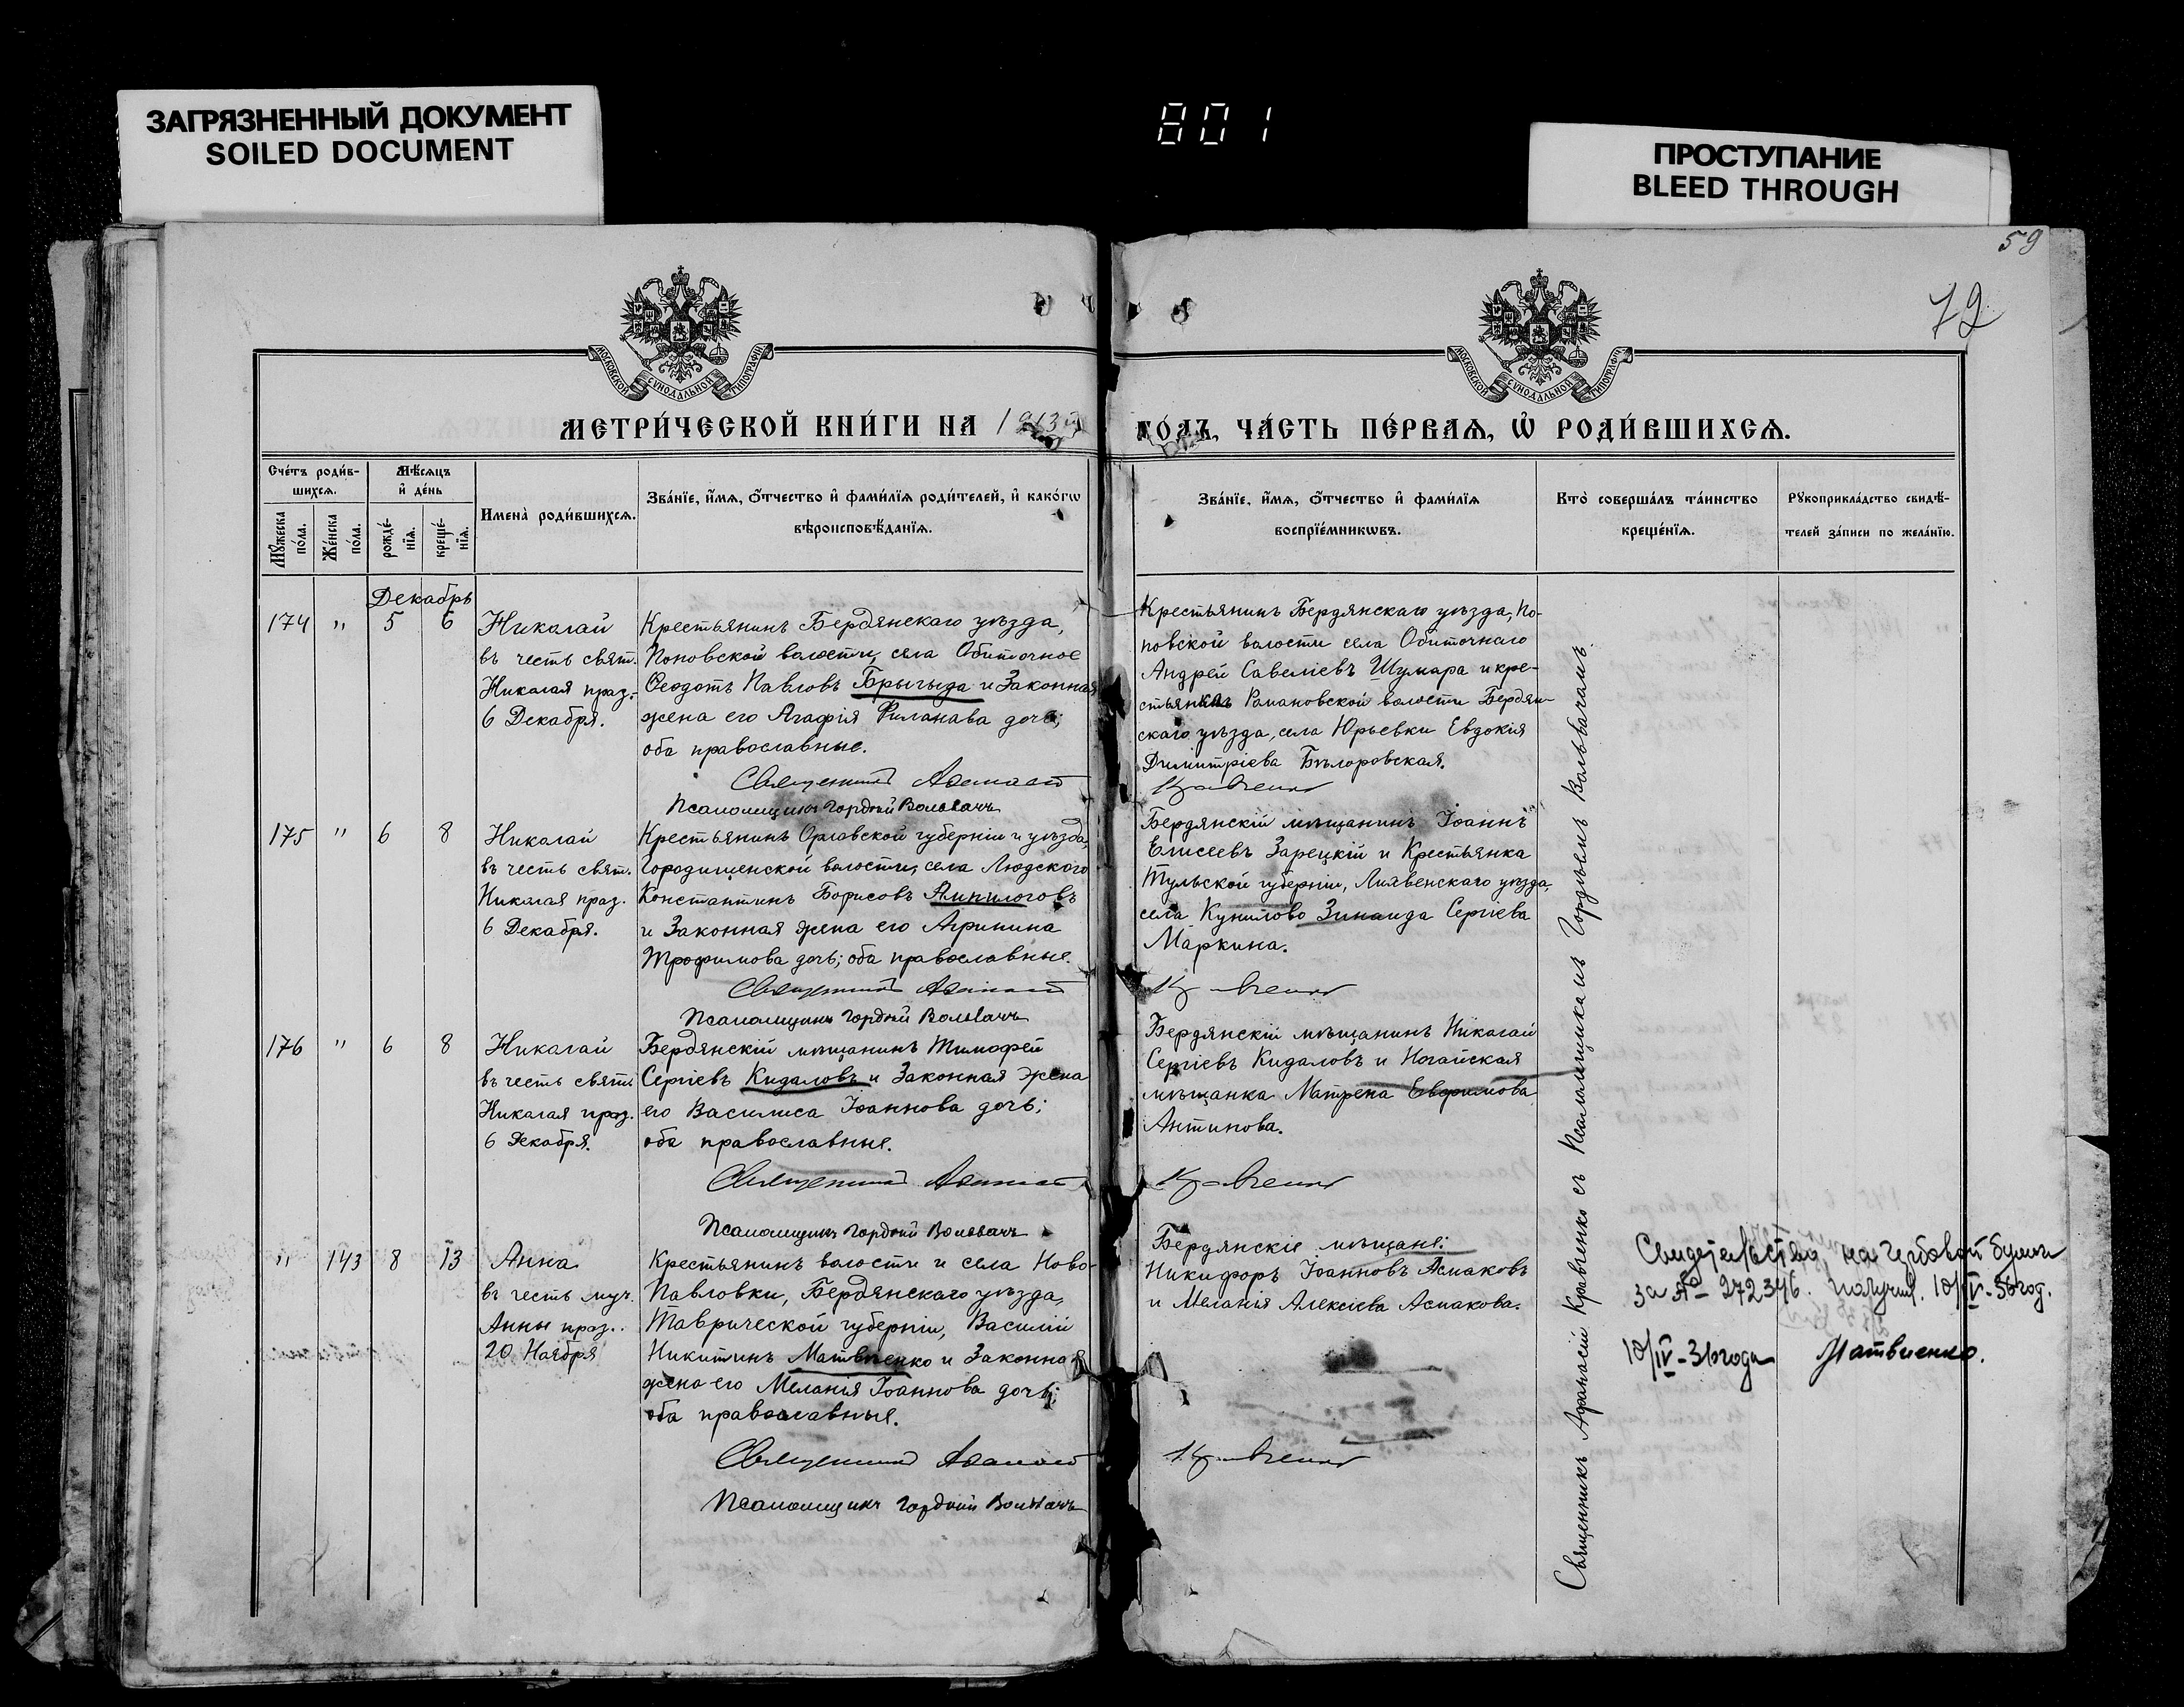 ЗАГРЯЗНЕННЫЙ ДОКУМЕНТ
SOILED DOCUMENT
801
ПРОСТУПАНИЕ
BLEED THROUGH
59
72
МОСКОВСКОЙ СѴНОДАЛЬНОЙ ТИПОГРАФІИ
МОСКОВСКОЙ СѴНОДАЛЬНОЙ ТИПОГРАФІИ
МЕТРИ́ЧЕСКОЙ КНИ́ГИ НА 1913й
ГО́ДЪ, ЧА́СТЬ ПЕ́РВАѦ, Ѡ҆ РОДИ́ВШИХСѦ.
Сче́тъ роди́в-
шихсѧ.
Мѣ́сѧцъ
и҆ де́нь
Мꙋ́жеска
по́ла.
Же́нска
по́ла.
рожде́-
нїѧ.
креще́-
нїѧ.
Имена̀ роди́вшихсѧ.
Зва́нїе, и҆́мѧ, о҆́тчество и҆ фами́лїѧ роди́телей, и҆ како́гѡ
вѣроисповѣ́данїѧ.
Зва́нїе, и҆́мѧ, о҆́тчество и҆ фами́лїѧ
воспрїе́мникѡвъ.
Кто̀ соверша́лъ та́инство
креще́нїѧ.
Рꙋкоприкла́дство свидѣ́-
телей за́писи по жела́нїю.
Декабрь
174 " 5 6
Николай
въ честь свят.
Николая праз.
6 Декабря.
Крестьянинъ Бердянскаго уѣзда,
Поповской волости, села Обиточное
Ѳеодотъ Павловъ Брыгыда и Законная
жена его Агафія дочь;
оба православные.
Священникъ Аѳанасій
Псаломщикъ Гордѣй Вольвачъ
Крестьянинъ Бердянскаго уѣзда, По-
повской волости села Обиточнаго
Андрей Савеліевъ Шумара и кре-
стьянка Романовской волости Бердян-
скаго уѣзда, села Юрьевки Евдокія
Димитріева Бѣлоровская.
Кравченко
175 " 6 8
Николай
въ честь свят.
Николая праз.
6 Декабря.
Крестьянинъ Орловской губерніи и уѣзда,
Городищенской волости, села Людского
Константинъ Борисовъ Анпилоговъ
и Законная жена его Агрипина
Трофимова дочь; оба православные.
Священникъ Аѳанасій
Псаломщикъ Гордѣй Вольвачъ
Бердянскій мѣщанинъ Іоаннъ
Елисеевъ Зарецкій и Крестьянка
Тульской губерніи, Лихвенскаго уѣзда,
села Кунилово Зинаида Сергіева
Маркина.
Кравченко
176 " 6 8
Николай
въ честь святи
Николая праз.
6 Декабря.
Бердянскій мѣщанинъ Тимофей
Сергіевъ Кидаловъ и Законная жена
его Василиса Іоаннова дочь;
оба православныя.
Священникъ Аѳанасій
Псаломщикъ Гордѣй Вольвачъ
Бердянскій мѣщанинъ Николай
Сергіевъ Кидаловъ и Ногайская
мѣщанка Матрена Евфимова
Антипова.
Кравченко
" 143 8 13
Анна
въ честь муч.
Анны праз.
20 Ноября
Крестьянинъ волости и села Ново-
Павловки, Бердянскаго уѣзда,
Таврической губерніи, Василій
Никитинъ Матвѣенко и Законная
жена его Меланія Іоаннова дочь;
оба православныя.
Священникъ Аѳанасій
Псаломщикъ Гордѣй Вольвачъ
Бердянскіе мѣщане:
Никифоръ Іоанновъ Асмаковъ
и Меланія Алексіева Асмакова.
Кравченко
Священникъ Афанасій Кравченко съ Псаломщикамъ Гордѣемъ Вольвачамъ.
Свидетельство на гербовой бумаги
за № 272346. получил. 10/IV-36 год.
10/IV-36 года Матвиенко.